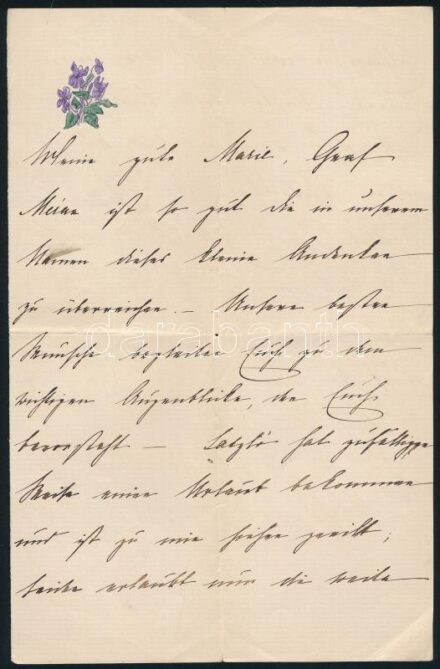 Meine gute Marie, Graf
Meran ist so gut dir in unserem
Namen dieses kleine Andenken
zu überreichen. – Unsere besten
Wünsche begleiten Euch zu dem
wichtigen Augenblicke, der Euch
bevorsteht – László hat zufälliger
Weise einen Urlaub bekommen
und ist zu mir hieher geeilt;
leider erlaubt nur die weite
darabanth